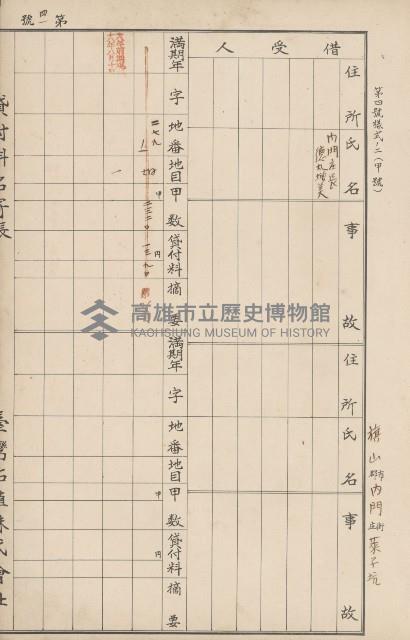 第四一號
第四號樣式ノ二(甲號)
旗山郡市內門庄街菜子坑
借受人
住所氏名
事故
住所氏名
事故
內門庄長
滿期年
字
地番
地目
甲數
貸付料
摘要
滿期年
字
地番
地目
甲數
貸付料
摘要
甲
円
甲
円
二七九
高雄市立歷史博物館
KAOHSIUNG MUSEUM OF HISTORY
貸付料名寄帳
臺灣拓殖株式會社